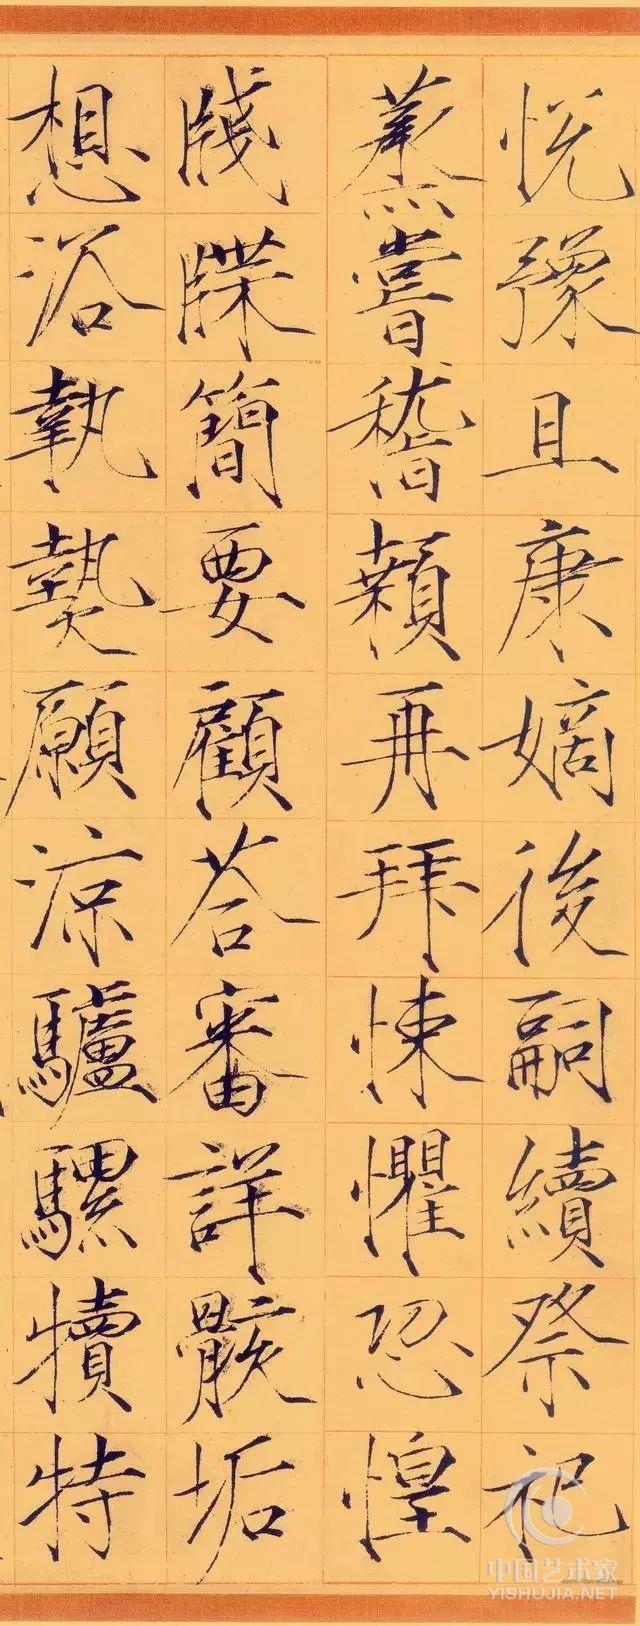 悦豫且康嫡後嗣續祭祀
蒸嘗稽顙再拜悚懼恐惶
牋牒簡要顧荅審詳骸垢
想浴執熱願涼驢騾犢特
中国艺术家
YISHUJIA.NET